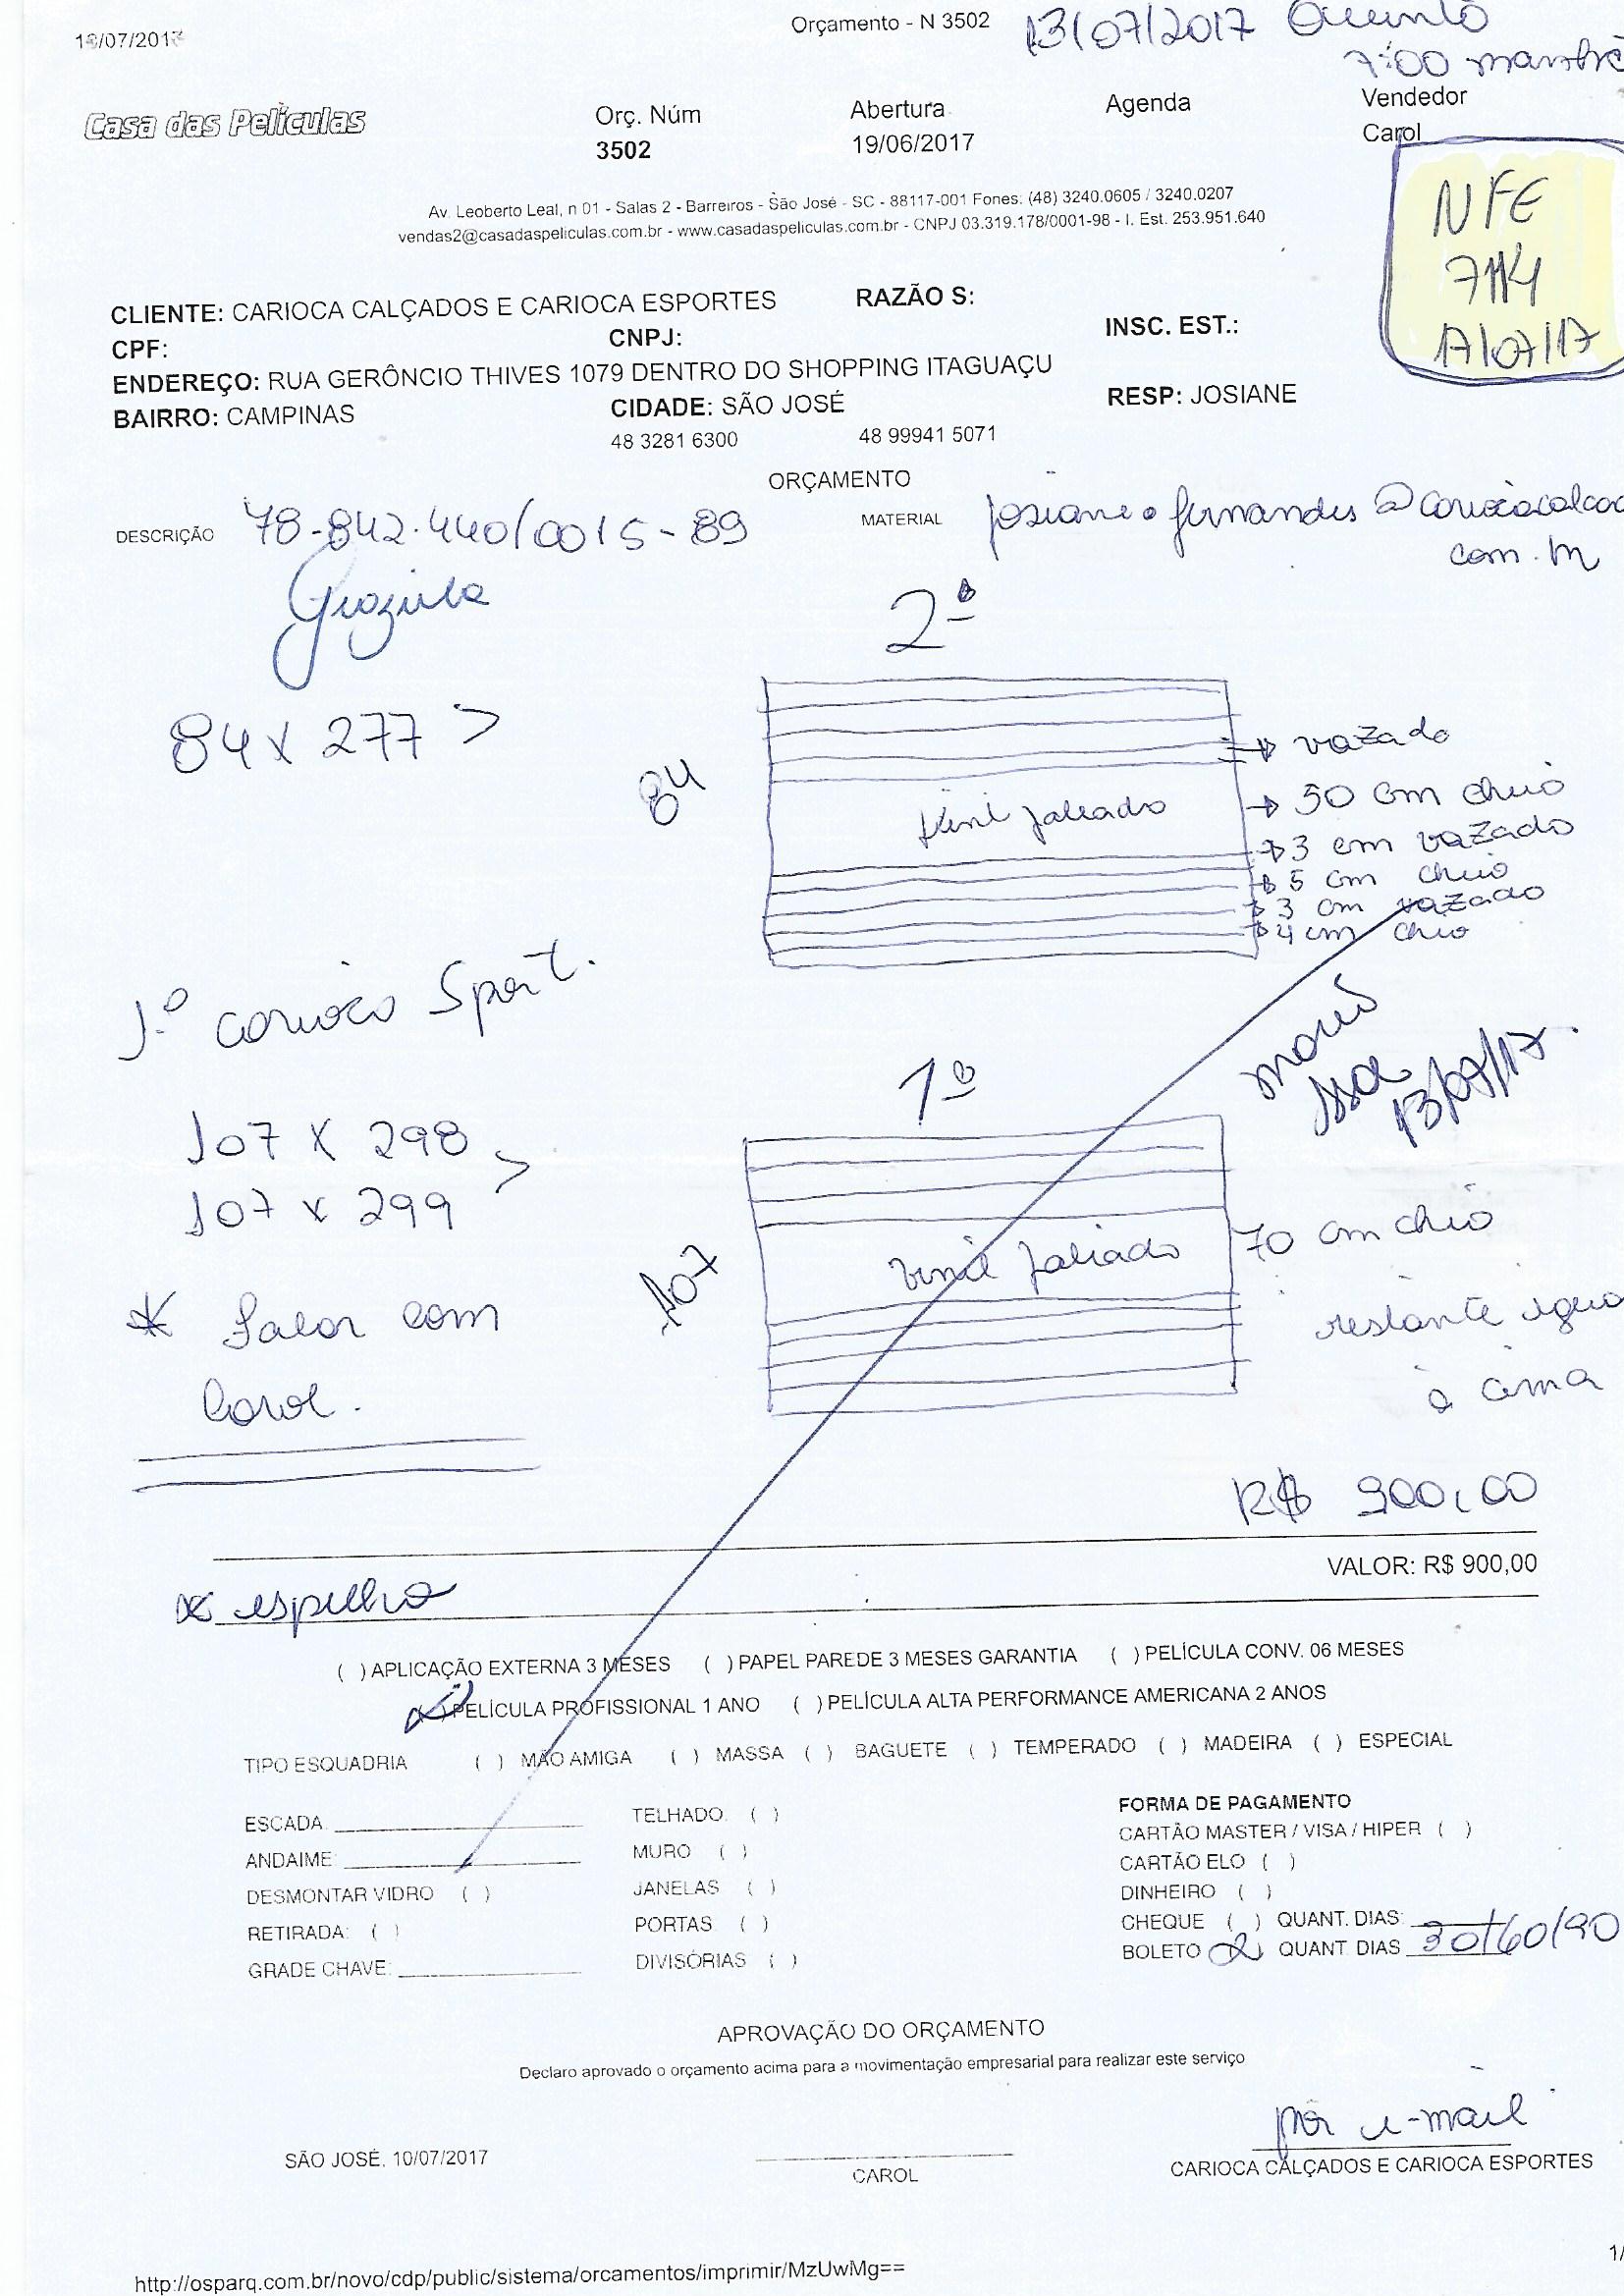 Orçamento - N 3502
13/07/2017
7:00
Casa das Películas
Orç. Núm
3502
Abertura
19/06/2017
Agenda
Vendedor
Carol
NFE
7114
17/07/17
Av. Leoberto Leal, n 01 - Salas 2 - Barreiros - São José - SC - 88117-001 Fones: (48) 3240.0605 / 3240.0207
vendas2@casadaspeliculas.com.br - www.casadaspeliculas.com.br - CNPJ 03.319.178/0001-98 - I. Est. 253.951.640
CLIENTE: CARIOCA CALÇADOS E CARIOCA ESPORTES RAZÃO S:
CPF: CNPJ: INSC. EST.:
ENDEREÇO: RUA GERÔNCIO THIVES 1079 DENTRO DO SHOPPING ITAGUAÇU
BAIRRO: CAMPINAS CIDADE: SÃO JOSÉ RESP: JOSIANE
48 3281 6300 48 99941 5071
ORÇAMENTO
DESCRIÇÃO 78.842.440/0015-89 MATERIAL
2º
84 x 277 >
84
vazado
50 cm cheio
3 cm vazado
5 cm cheio
3 cm vazado
4 cm cheio
1º Carioca Sport.
13/07/17.
1º
107 x 298 >
107 x 299
107
vinil jateado
70 cm cheio
restante
* Falar com
Carol.
R$ 900,00
VALOR: R$ 900,00
espelho
( ) APLICAÇÃO EXTERNA 3 MESES ( ) PAPEL PAREDE 3 MESES GARANTIA ( ) PELÍCULA CONV. 06 MESES
(x) PELÍCULA PROFISSIONAL 1 ANO ( ) PELÍCULA ALTA PERFORMANCE AMERICANA 2 ANOS
TIPO ESQUADRIA ( ) MÃO AMIGA ( ) MASSA ( ) BAGUETE ( ) TEMPERADO ( ) MADEIRA ( ) ESPECIAL
ESCADA
ANDAIME:
DESMONTAR VIDRO ( )
RETIRADA: ( )
GRADE CHAVE:
TELHADO: ( )
MURO ( )
JANELAS ( )
PORTAS ( )
DIVISÓRIAS ( )
FORMA DE PAGAMENTO
CARTÃO MASTER / VISA / HIPER ( )
CARTÃO ELO ( )
DINHEIRO ( )
CHEQUE ( ) QUANT. DIAS:
BOLETO (x) QUANT. DIAS 30/60/90
APROVAÇÃO DO ORÇAMENTO
Declaro aprovado o orçamento acima para a movimentação empresarial para realizar este serviço
por e-mail
SÃO JOSÉ, 10/07/2017
CAROL
CARIOCA CALÇADOS E CARIOCA ESPORTES
http://osparq.com.br/novo/cdp/public/sistema/orcamentos/imprimir/MzUwMg==